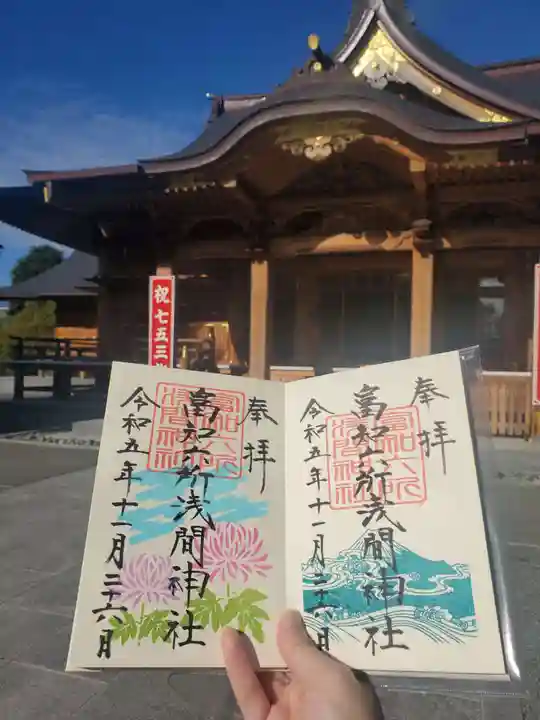 祝七五三
奉拝
富知六所浅間神社
令和五年十一月二十六日
富知六所
浅間神社
奉拝
富知六所浅間神社
令和五年十一月二十六日
富知六所
浅間神社